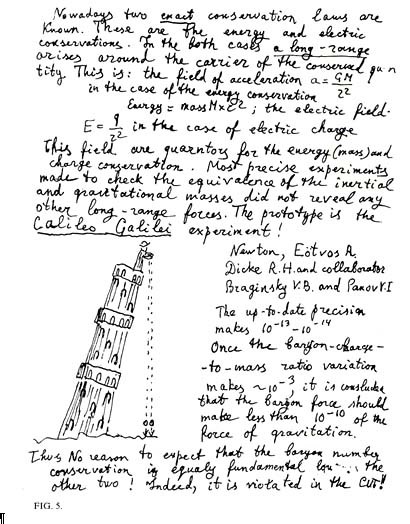 Nowadays two exact conservation laws are
known. These are the energy and electric
conservations. In the both cases a long-range
arises around the carrier of the conserved quan
tity. This is: the field of acceleration a = GM/r²
in the case of the energy conservation
Energy = mass M×c²; the electric field.
E = q/r² in the case of electric charge
This field are guarntors for the energy (mass) and
charge conservation. Most precise experiments
made to check the equivalence of the inertial
and gravitational masses did not reveal any
other long-range forces. The prototype is the
Galileo Galilei experiment!
Newton, Eötvos R.
Dicke R.H. and collaborator
Braginsky V.B. and Panov V.I
The up-to-date precision
makes 10⁻¹³-10⁻¹⁴
Once the baryon-charge-
-to-mass ratio variation
makes ~10⁻³, it is concluded
that the baryon force should
make less than 10⁻¹⁰ of the
force of gravitation.
Thus No reason to expect that the baryon number
conservation is equaly fundamental the
other two! Indeed, it is violated in the GUT!!
¶
FIG. 5.